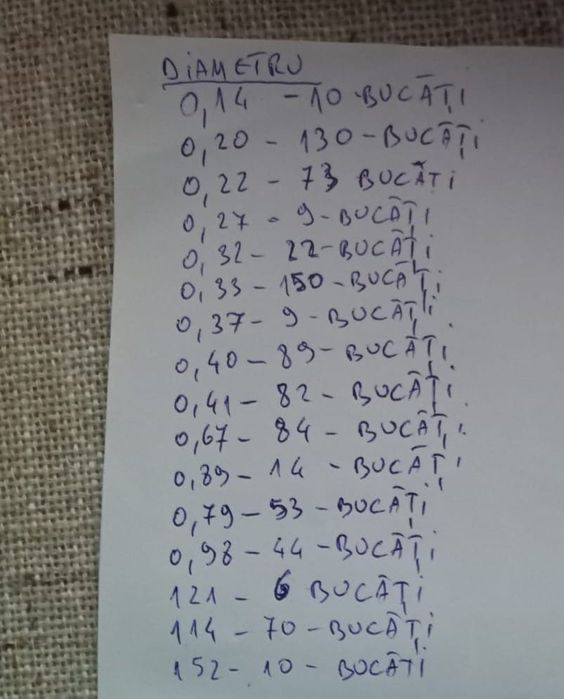 DIAMETRU
0,14 - 10 - BUCĂȚI
0,20 - 130 - BUCĂȚI
0,22 - 73 BUCĂȚI
0,27 - 9 - BUCĂȚI
0,32 - 22 - BUCĂȚI
0,33 - 150 - BUCĂȚI
0,37 - 9 - BUCĂȚI
0,40 - 89 - BUCĂȚI
0,41 - 82 - BUCĂȚI
0,67 - 84 - BUCĂȚI
0,89 - 14 - BUCĂȚI
0,79 - 53 - BUCĂȚI
0,98 - 44 - BUCĂȚI
121 - 6 BUCĂȚI
114 - 70 - BUCĂȚI
152 - 10 - BUCĂȚI